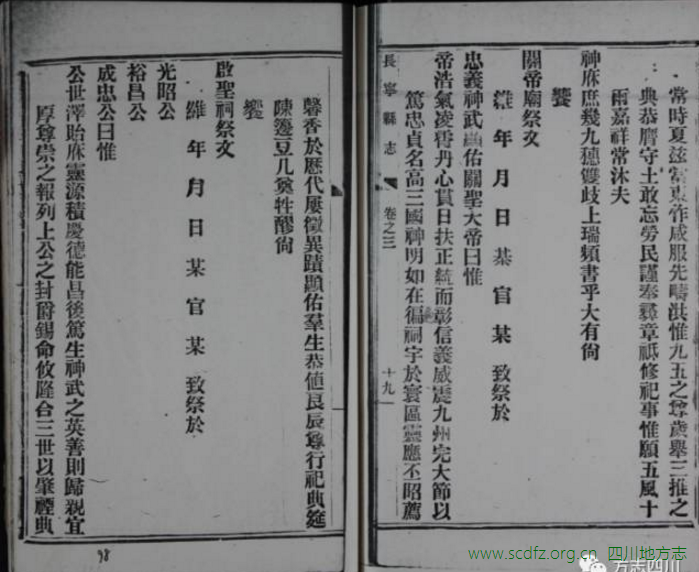 常時夏茲當東作咸服先疇洪惟九五之尊歲舉三推之
典恭膺守土敢忘勞民謹奉彞章祇修祀事惟願五風十
雨嘉祥常沐夫
神庥庶幾九穗雙歧上瑞頻書乎大有尙
饗
關帝廟祭文
維 年 月 日 某 官 某 致祭於
忠義神武 佑關聖大帝曰惟
帝浩氣凌霄丹心貫日扶正統而彰信義威震九州完大節以
篤忠貞名高三國神明如在徧祠宇於寰區靈應丕昭薦
長寧縣志
卷之三
十九
馨香於歷代屢徵異蹟顯佑羣生恭值良辰尊行祀典筵
陳籩豆几奠牲醪尙
饗
啟聖祠祭文
維 年 月 日 某 官 某 致祭於
光昭公
裕昌公
成忠公曰惟
公世澤貽庥靈源積慶德能昌後篤生神武之英善則歸親宜
厚尊崇之報列上公之封爵錫命攸隆合三世以肇禋典
98
www.scdfz.org.cn 四川地方志
方志四川